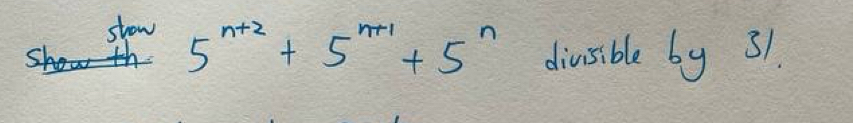 show 5^{n+2} + 5^{n+1} + 5^n divisible by 31.